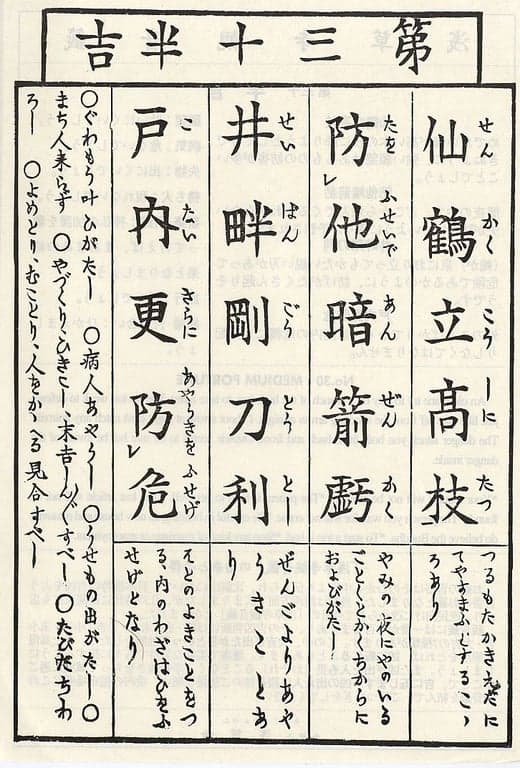 第三十半吉
せ かく こう しに たつ
仙鶴立高枝
つるもたかきえだに
てやすまふとするこゝ
ろあり
たを ふせいで あん ぜん かく
防レ他暗箭虧
やみの夜にやのいる
ごとしとかくちからに
およびがたし
せい はん ごう とう と
井畔剛刀利
ぜんごよりあや
うきことあ
り
こ たい さらに あやうきを ふせげ
戸内更防レ危
そとのよきことをつ
る、内のわざはひをふ
せげとなり
○ぐわもう叶ひがたし ○病人あやうし ○うせもの出がたし ○
まち人来らず ○やづくり、ひきこし木吉しんぐすべし ○たびだちわ
ろし ○よめとり、むことり、人をかゝへる見合すべし